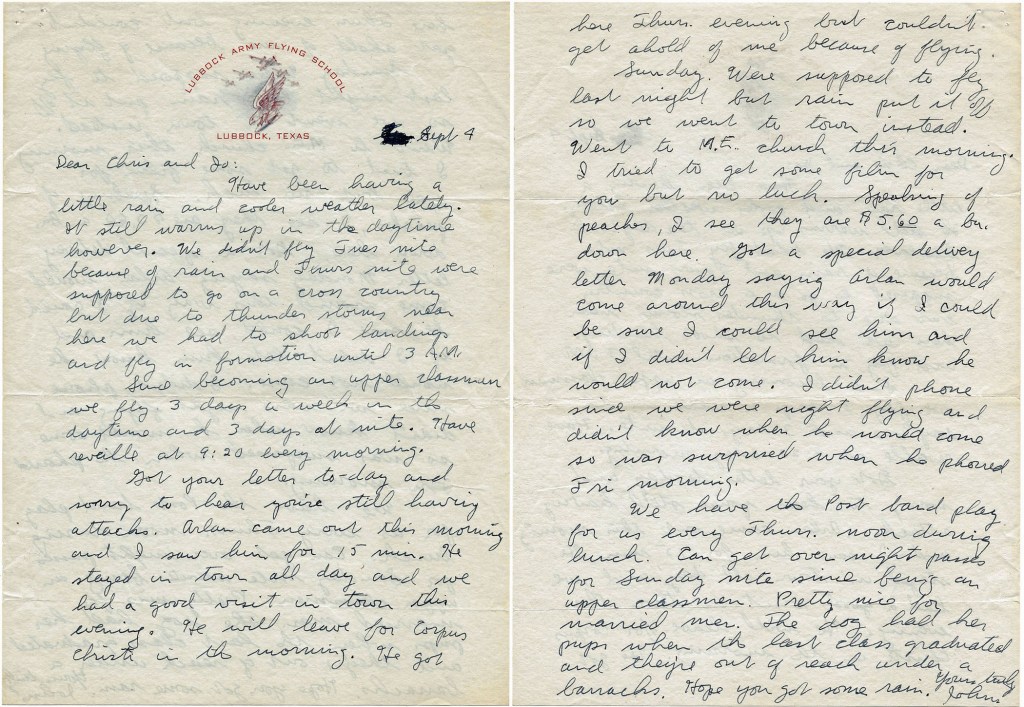 LUBBOCK ARMY FLYING SCHOOL
LUBBOCK, TEXAS
Sept 4
Dear Chris and Jo:
Have been having a
little rain and cooler weather lately.
It still warms up in the daytime
however. We didn't fly Tues nite
because of rain and Thurs nite were
supposed to go on a cross country
but due to thunder storms near
here we had to shoot landings
and fly in formation until 3 A.M.
Since becoming an upper classmen
we fly 3 days a week in the
daytime and 3 days at nite. Have
reveille at 9:20 every morning.
Got your letter to-day and
sorry to hear you're still having
attacks. Arlan came out this morning
and I saw him for 15 min. He
stayed in town all day and we
had a good visit in town this
evening. He will leave for Corpus
Christi in the morning. He got
here Thurs. evening but couldn't
get ahold of me because of flying.
Sunday. Were supposed to fly
last night but rain put it off
so we went to town instead.
Went to M.E. church this morning.
I tried to get some film for
you but no luck. Speaking of
peaches, I see they are $5.60 a bu.
down here. Got a special delivery
letter Monday saying Arlan would
come around this way if I could
be sure I could see him and
if I didn't let him know he
would not come. I didn't phone
since we were night flying and
didn't know when he would come
so was surprised when he phoned
Fri morning.
We have the Post band play
for us every Thurs. noon during
lunch. Can get over night passes
for Sunday nite since being an
upper classmen. Pretty nice for
married men. The dog had her
pups when the last class graduated
and they're out of reach under a
barracks. Hope you got some rain.
Yours truly
John